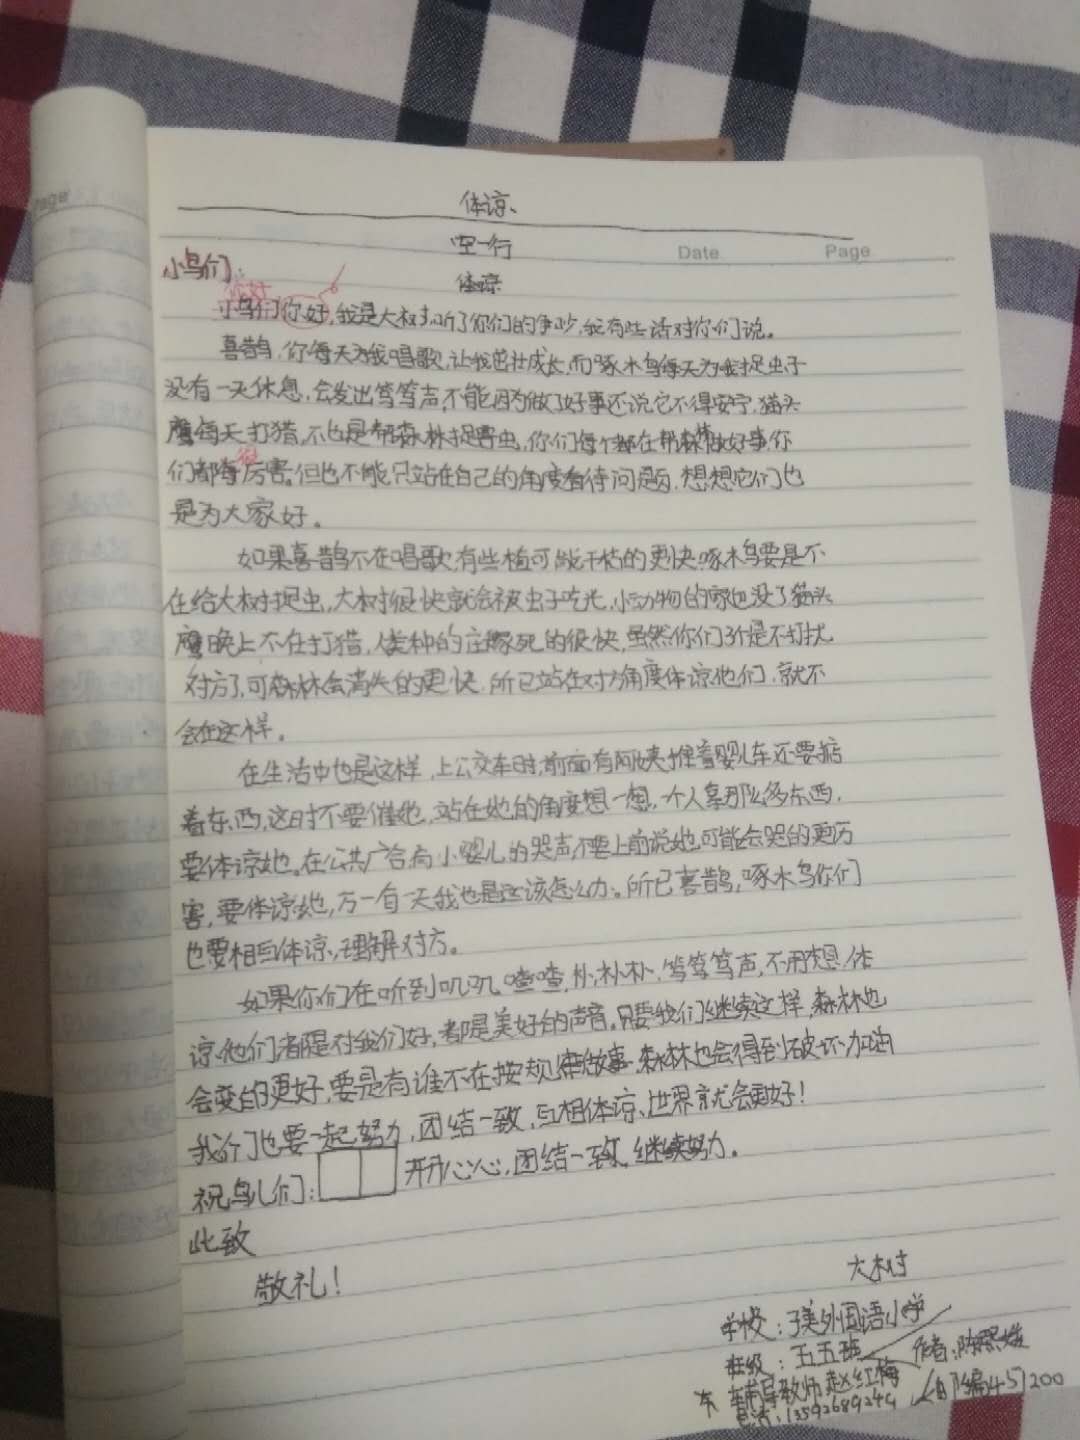 Page
体谅
空一行
Date Page
小鸟们：
体谅
你好
小鸟们你好,我是大树,听了你们的争吵,我有些话对你们说。
喜鹊,你每天为我唱歌,让我茁壮成长,而啄木鸟每天为我捉虫子
没有一天休息,会发出笃笃声,不能因为做了好事还说它不得安宁,猫头
鹰每天打猎,不也是帮森林捉害虫,你们每个都在帮森林做好事,你
很
们都每厉害。但也不能只站在自己的角度看待问题,想想它们也
是为大家好。
如果喜鹊不在唱歌,有些植可能干枯的更快,啄木鸟要是不
在给大树捉虫,大树很快就会被虫子吃光,小动物的家也没了猫头
鹰晚上不在打猎,人类种的庄稼死的很快,虽然你们3个是不打扰
对方了,可森林会消失的更快,所已站在对方角度体谅他们,就不
会在这样。
在生活中也是这样,上公交车时,前面有阿姨推着婴儿车还要掂
着东西,这时不要催她,站在她的角度想一想,个人拿那么多东西,
要体谅她。在公共广合有小婴儿的哭声,不要上前说她,可能会哭的更历
害,要体谅她,万一有一天我也是这该怎么办。所已喜鹊,啄木鸟你们
也要相互体谅,理解对方。
如果你们在听到叽叽喳喳,朴朴朴,笃笃笃声,不用想,体
谅他们都是对我们好,都是美好的声音。只要我们继续这样,森林也
会变的更好,要是有谁不在按规律做事,森林也会得到破坏,加油
我们也要一起努力,团结一致,互相体谅,世界就会更好!
祝鸟儿们: 开开心心,团结一致,继续努力。
此致
敬礼!
大树
学校:子美外国语小学
班级:五五班 作者:陈
辅导教师赵红梅 邮编451200
电话:13592689249